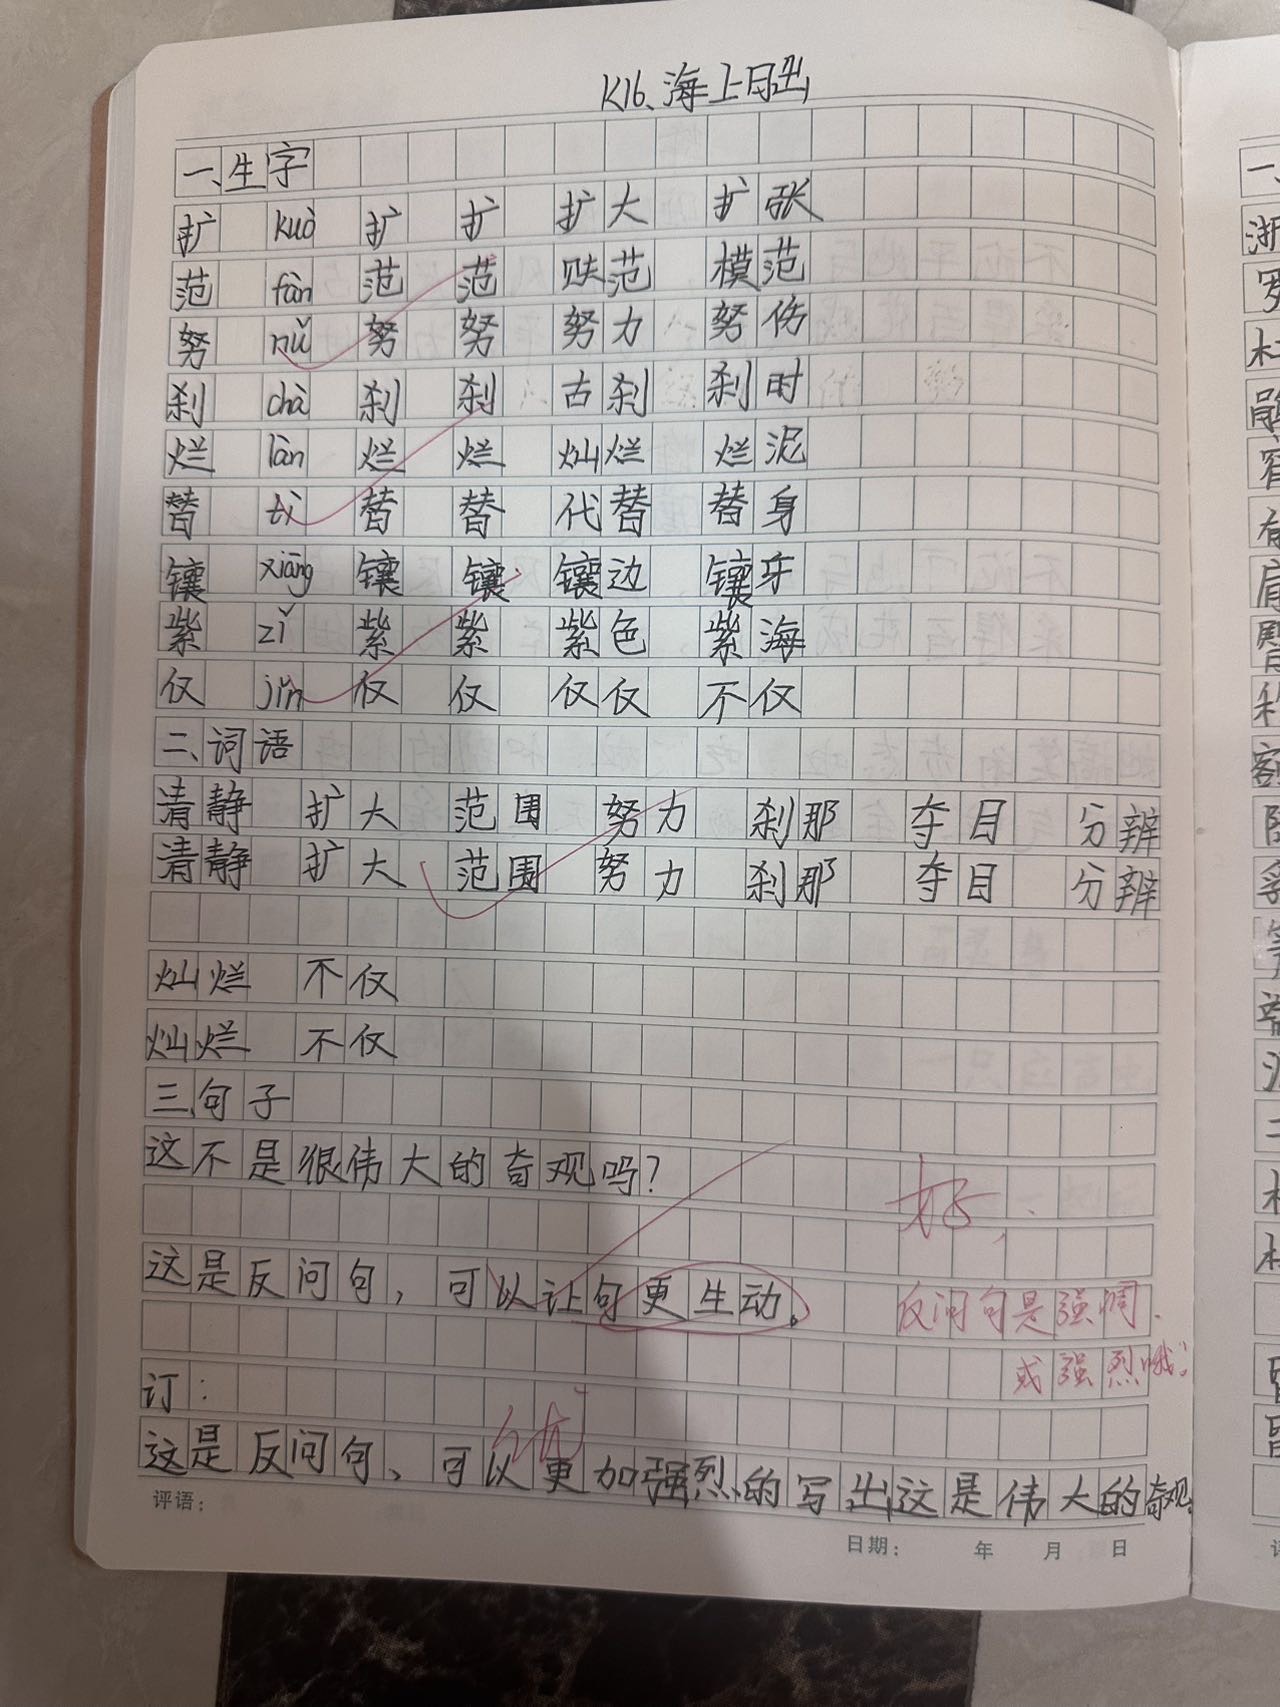 K16、海上日出
一、生字
扩 kuò 扩 扩 扩大 扩张
范 fàn 范 范 范 模范
努 nǔ 努 努 努力 努伤
刹 chà 刹 刹 古刹 刹时
烂 làn 烂 烂 灿烂 烂泥
替 tì 替 替 代替 替身
镶 xiāng 镶 镶 镶边 镶牙
紫 zǐ 紫 紫 紫色 紫海
仅 jǐn 仅 仅 仅仅 不仅
二、词语
清静 扩大 范围 努力 刹那 夺目 分辨
清静 扩大 范围 努力 刹那 夺目 分辨
灿烂 不仅
灿烂 不仅
三、句子
这不是很伟大的奇观吗?
好,
这是反问句,可以让句更生动。
反问句是强调.
或强烈哦!
订:
优
这是反问句,可以更加强烈的写出这是伟大的奇观。
评语:
日期: 年 月 日
一、
浙
罗
杜